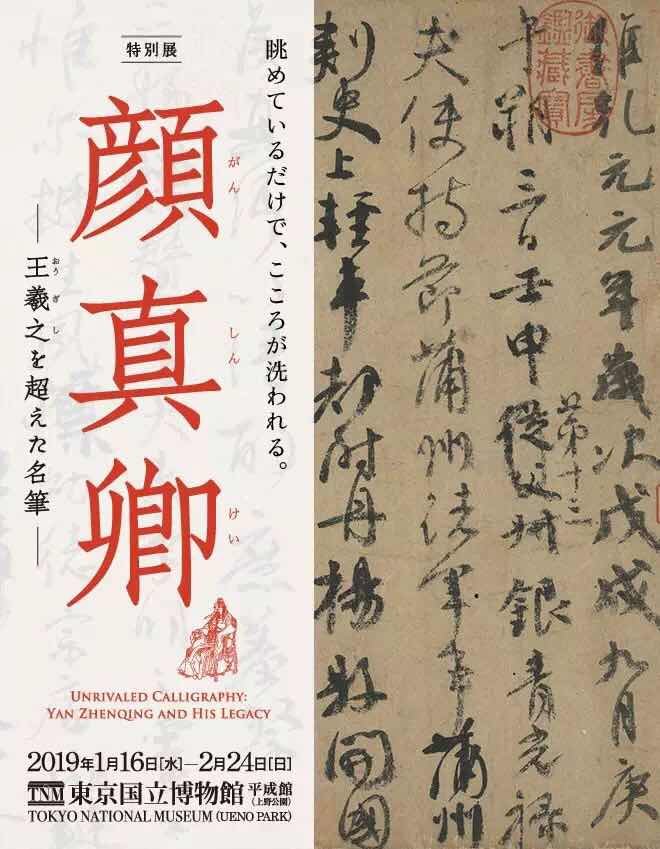 特別展
眺めているだけで、こころが洗われる。
顔真卿
がん しん けい
王羲之を超えた名筆
おう ぎ し
UNRIVALED CALLIGRAPHY:
YAN ZHENQING AND HIS LEGACY
2019年1月16日[水]—2月24日[日]
TNM 東京国立博物館 平成館
(上野公園)
TOKYO NATIONAL MUSEUM (UENO PARK)
維乾元元年歲次戊戌九月庚
午朔三日壬申從父叔銀青光祿
第十三
夫使持節蒲州諸軍事蒲州
刺史上輕車都尉丹楊縣開國
御書房鑑藏寶